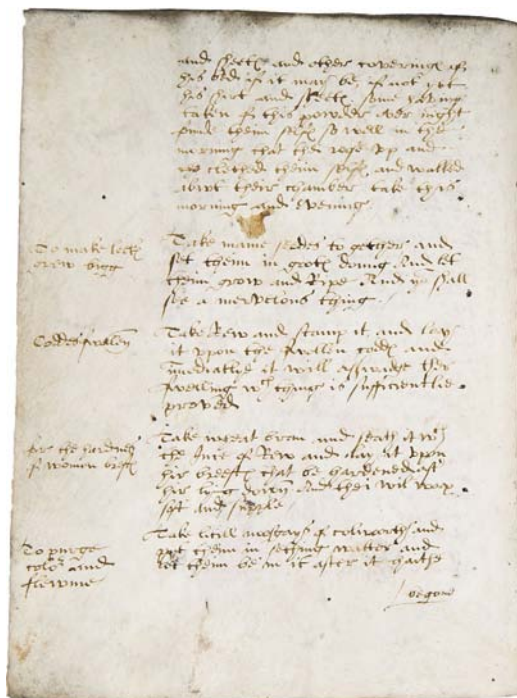 and sheetes and other coverings of
his bed if it may be, if not yet
his shirt and sheetes some having
taken of this powder over night
finde them selfes so well in the
morning that thei rose up and
clothed them selfes and walked
abowt their chamber take this
morning and Evening
To make leekes
grow bigg
Take manie seedes to gether and
set them in gotes donng And let
them grow and Ripe And yow shall
see a mervelous thing
Coddes swolen
Take Rew and stamp it and lay
it uppon the swellen coddes and
ymmediatlie it will asswadge ther
swelling wch thinge is sufficientlie
proved
for the hardnes
of women brestes
Take wheat bran and seath it wth
the Juce of Rew and lay it uppon
hir breestes that be hardened of
hir and thei wil wax
soft and supple
To purge
coler and
flewme
Take litill of coleworths and
put them in sething watter and
let them be in it after it haithe